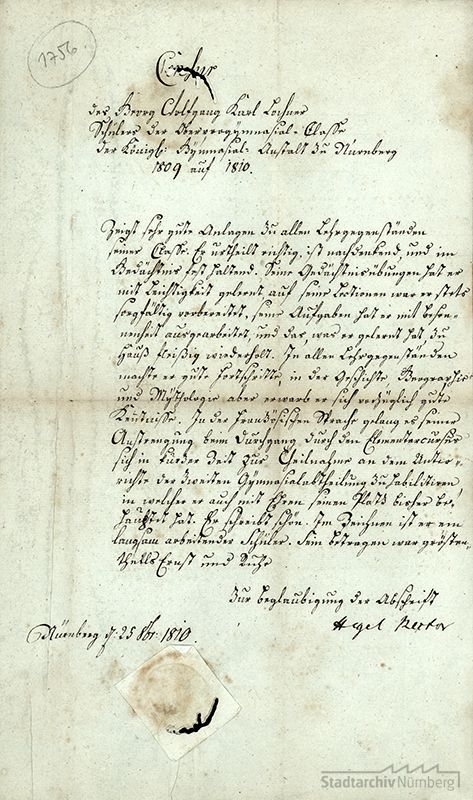 1756.
Censur
des Georg Wolfgang Karl Lochner
Schülers der Oberprogymnasial-Classe
der Königl: Gymnasial-Anstalt zu Nürnberg
1809 auf 1810.
Zeigt sehr gute Anlagen zu allen Lehrgegenständen
seiner Classe. Er urtheilt richtig, ist nachdenkend, und im
Gedächtniß fest haltend. Seine Gedächtnißübungen hat er
mit Leichtigkeit gelernt, auf seine Lectionen war er stets
sorgfältig vorbereitet, seine Aufgaben hat er mit beson-
nenheit ausgearbeitet, und das, was er gelernt hat, zu
Hauß fleißig wiederholt. In allen Lehrgegenständen
machte er gute fortschritte, in der Geschichte Geographie
und Mythologie aber erwarb er sich vorzüglich gute
Kenntnisse. In der französischen Sprache gelang es seiner
Anstrengung beim Durchgang durch den Elementarcursus
sich in kurzer Zeit zur Theilnahme an dem Unter-
richte der zweiten Gymnasialabtheilung zu habilitiren
in welcher er auch mit Ehren seinen Platz bisher be-
hauptet hat. Er schreibt schön. Im Zeichnen ist er ein
langsam arbeitender Schüler. Sein betragen war grösten-
theils Ernst und Ruhe
Zur beglaubigung der Abschrift
Nürnberg d: 25 8br: 1810.
Hegel Rector
Stadtarchiv Nürnberg